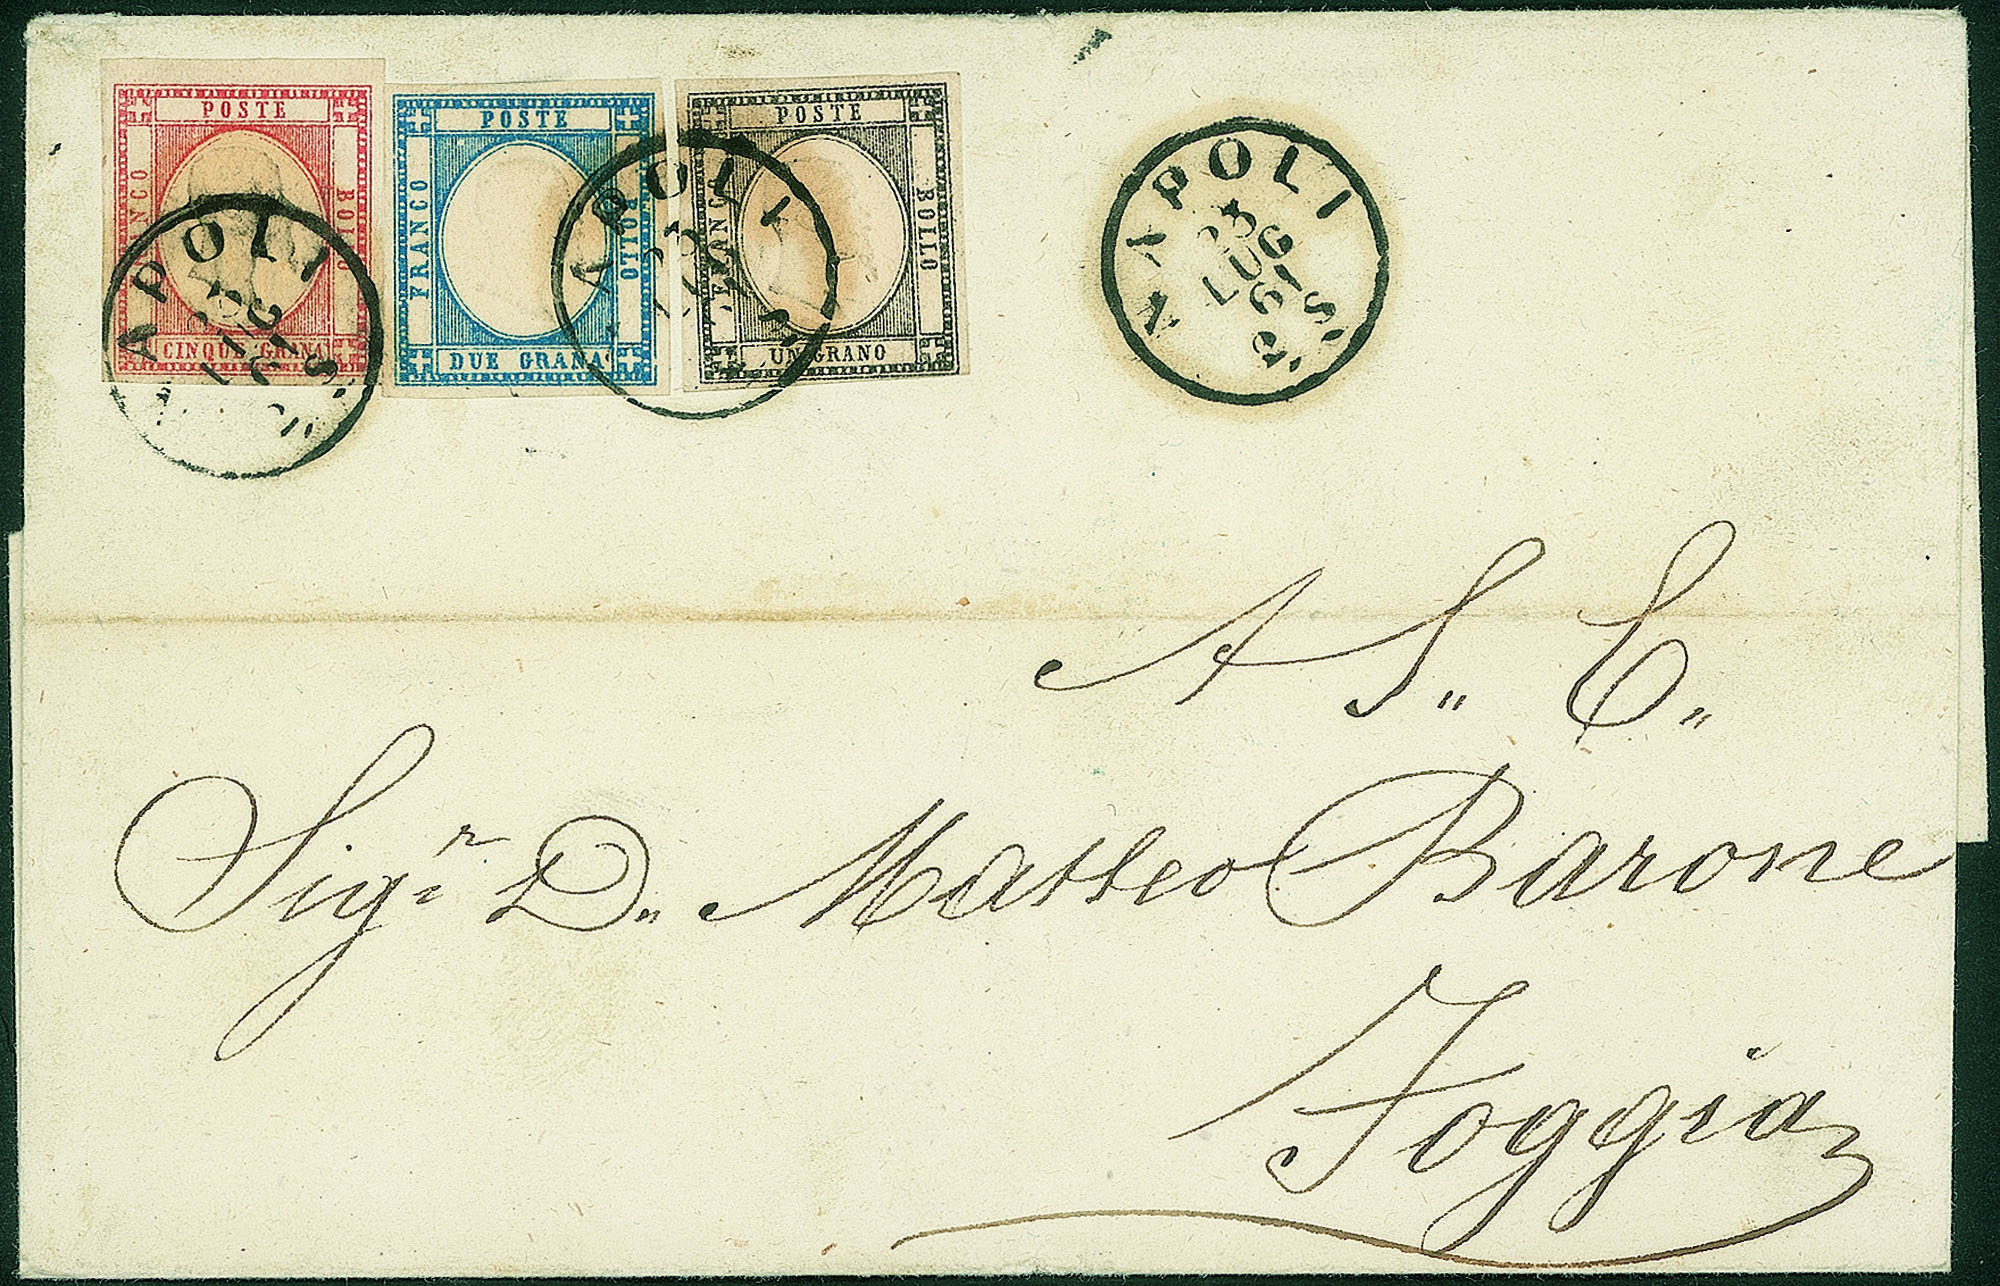 POSTE
FRANCO
BOLLO
CINQUE GRANA
POSTE
FRANCO
BOLLO
DUE GRANA
POSTE
FRANCO
BOLLO
UN GRANO
APOLI
APOLI
NAPOLI
LUG
61
A S. C.
Sig.r D. Matteo Barone
Foggia